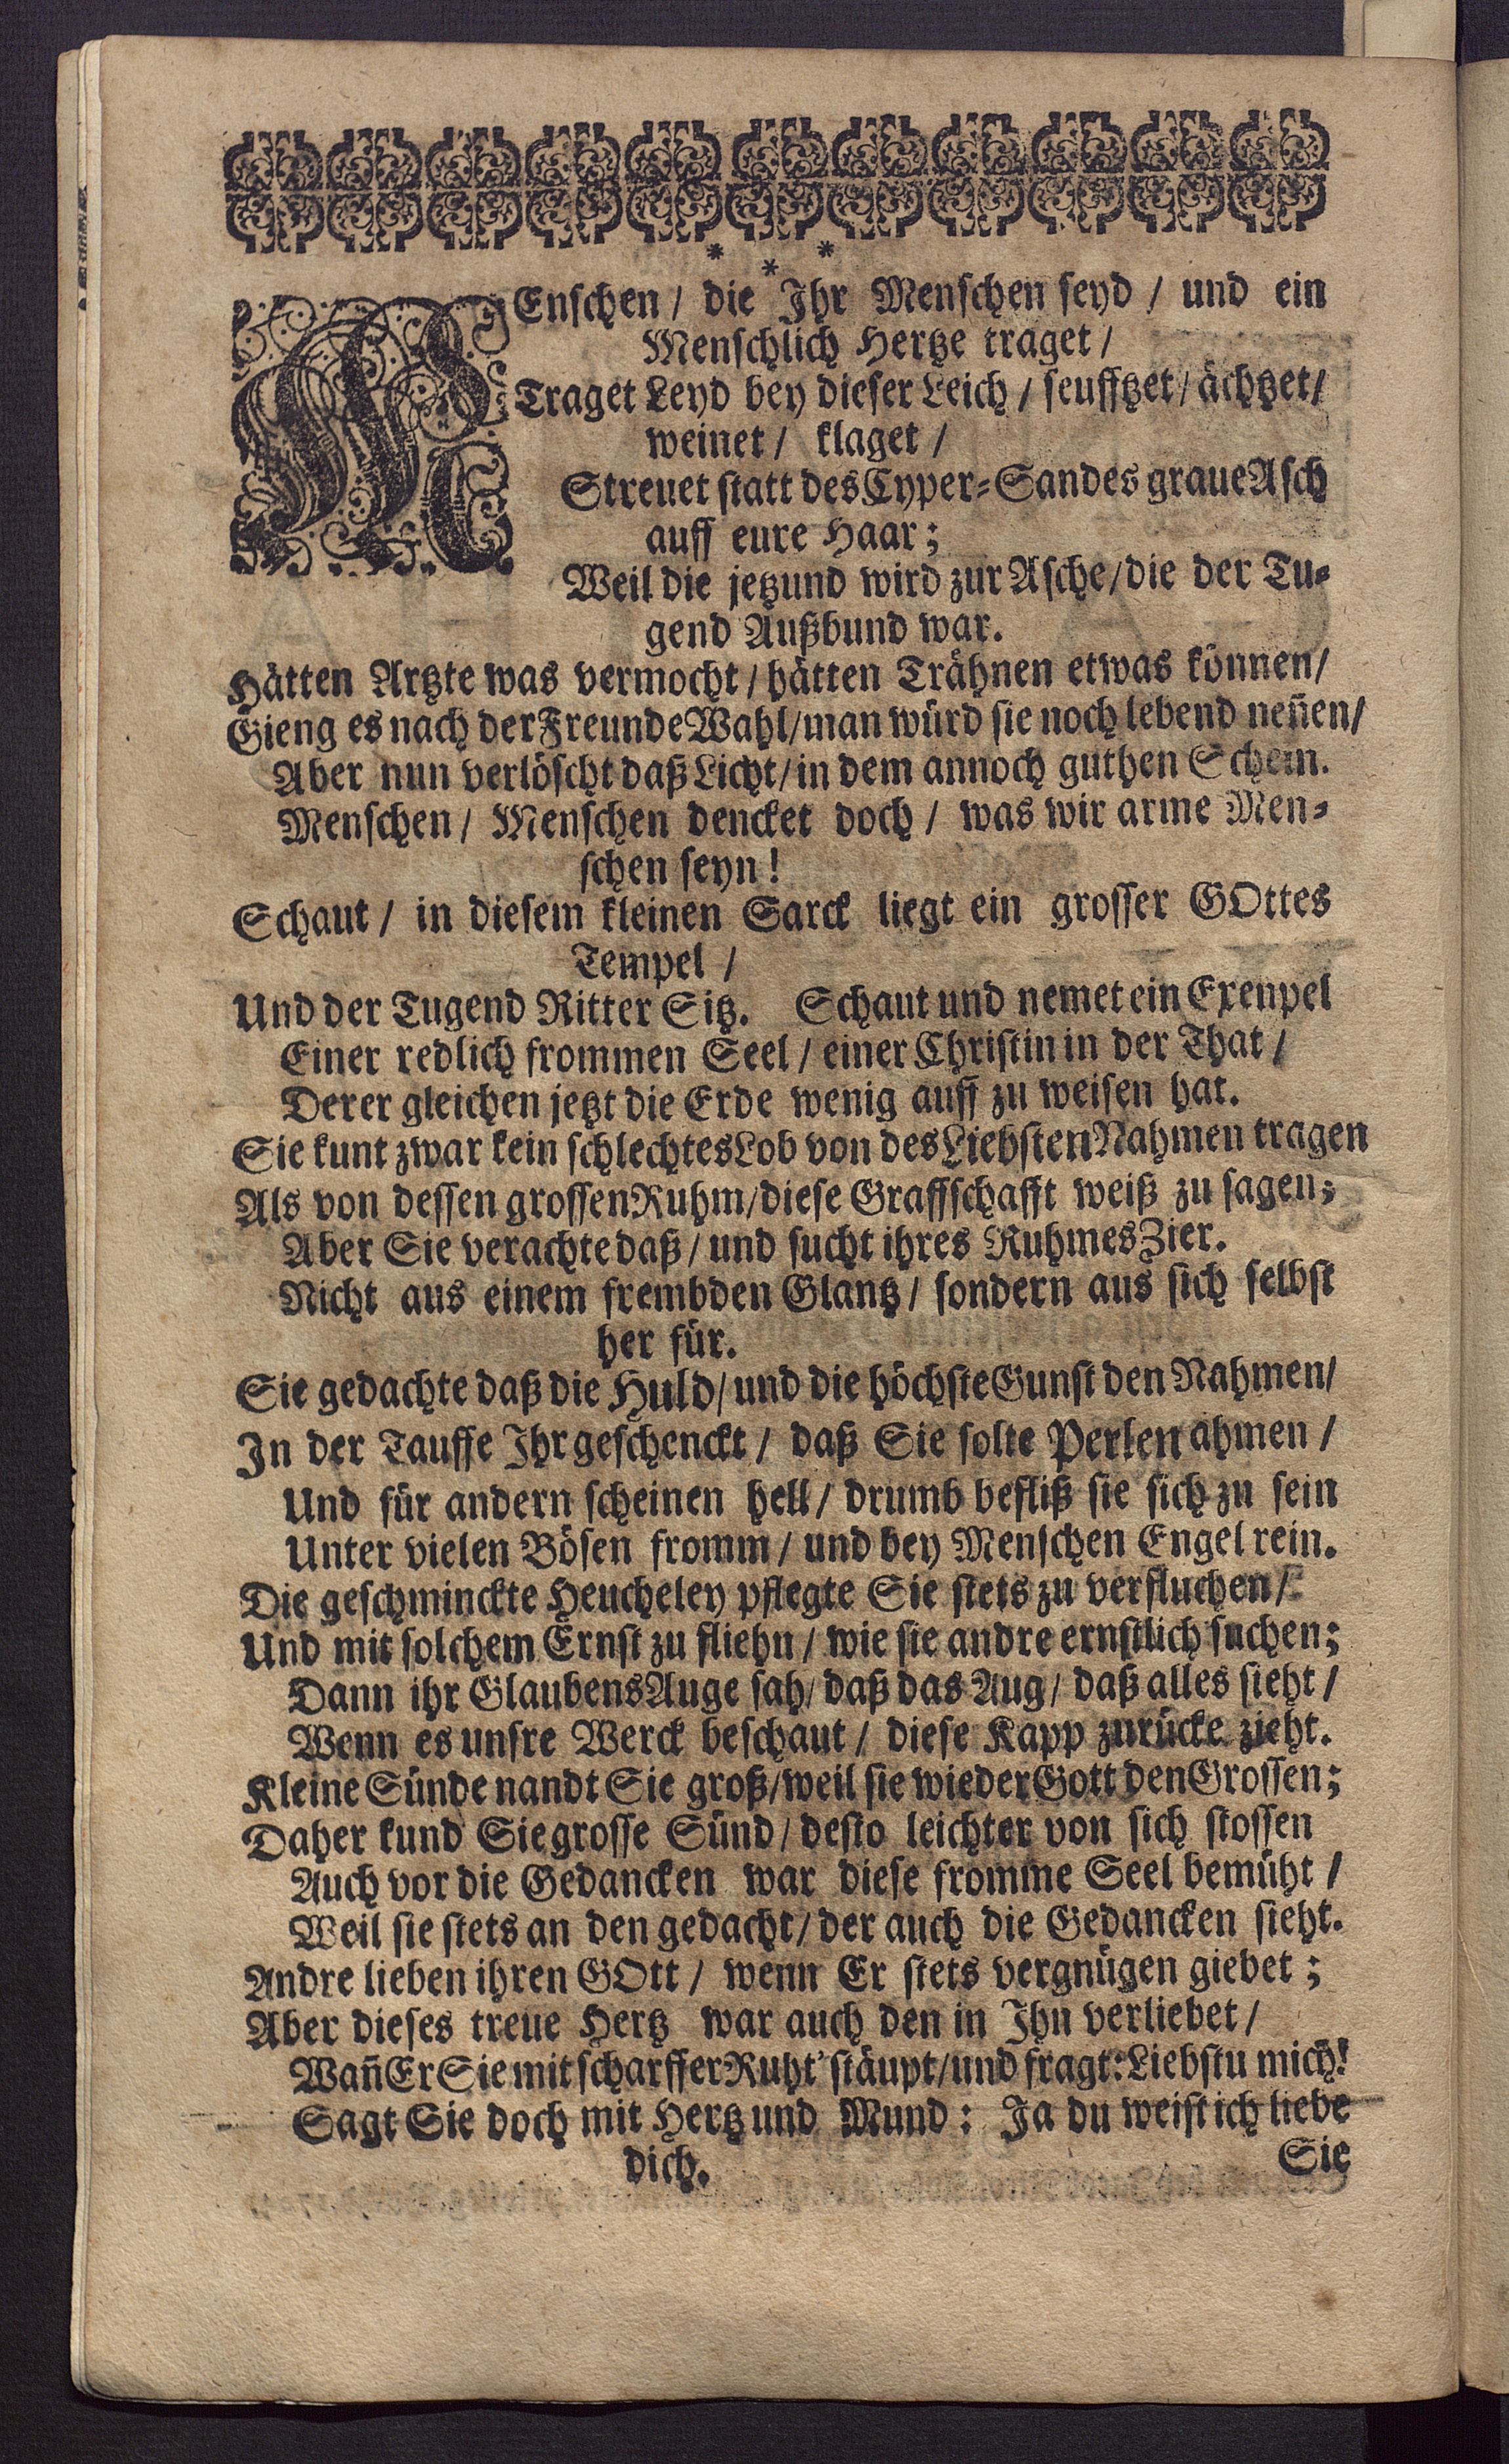 * * *
MEnschen / die Ihr Menschen seyd / und ein
Menschlich Hertze traget /
Traget Leyd bey dieser Leich / seufftzet / ächtzet /
weinet / klaget /
Streuet statt des Cyper-Sandes graue Asch
auff eure Haar;
Weil die jetzund wird zur Asche / die der Tu-
gend Außbund war.
Hätten Artzte was vermocht / hätten Trähnen etwas können /
Gieng es nach der Freunde Wahl / man würd sie noch lebend neñen /
Aber nun verlöscht daß Licht / in dem annoch guthen Schein.
Menschen / Menschen dencket doch / was wir arme Men-
schen seyn!
Schaut / in diesem kleinen Sarck liegt ein grosser GOttes
Tempel /
Und der Tugend Ritter Sitz. Schaut und nemet ein Exenpel
Einer redlich frommen Seel / einer Christin in der That /
Derer gleichen jetzt die Erde wenig auff zu weisen hat.
Sie kunt zwar kein schlechtes Lob von des Liebsten Nahmen tragen
Als von dessen grossen Ruhm / diese Graffschafft weiß zu sagen;
Aber Sie verachte daß / und sucht ihres Ruhmes Zier.
Nicht aus einem frembden Glantz / sondern aus sich selbst
her für.
Sie gedachte daß die Huld / und die höchste Gunst den Nahmen /
In der Tauffe Ihr geschenckt / daß Sie solte Perlen ahmen /
Und für andern scheinen hell / drumb befliß sie sich zu sein
Unter vielen Bösen fromm / und bey Menschen Engel rein.
Die geschminckte Heucheley pflegte Sie stets zu verfluchen /
Und mit solchem Ernst zu fliehn / wie sie andre ernstlich suchen;
Dann ihr Glaubens Auge sah / daß das Aug / daß alles sieht /
Wenn es unsre Werck beschaut / diese Kapp zurücke zieht.
Kleine Sünde nandt Sie groß / weil sie wieder Gott den Grossen;
Daher kund Sie grosse Sünd / desto leichter von sich stossen
Auch vor die Gedancken war diese fromme Seel bemüht /
Weil sie stets an den gedacht / der auch die Gedancken sieht.
Andre lieben ihren GOtt / wenn Er stets vergnügen giebet;
Aber dieses treue Hertz war auch den in Ihn verliebet /
Wañ Er Sie mit scharffer Ruht' stäupt / und fragt: Liebstu mich!
Sagt Sie doch mit Hertz und Mund: Ja du weist ich liebe
dich.
Sie